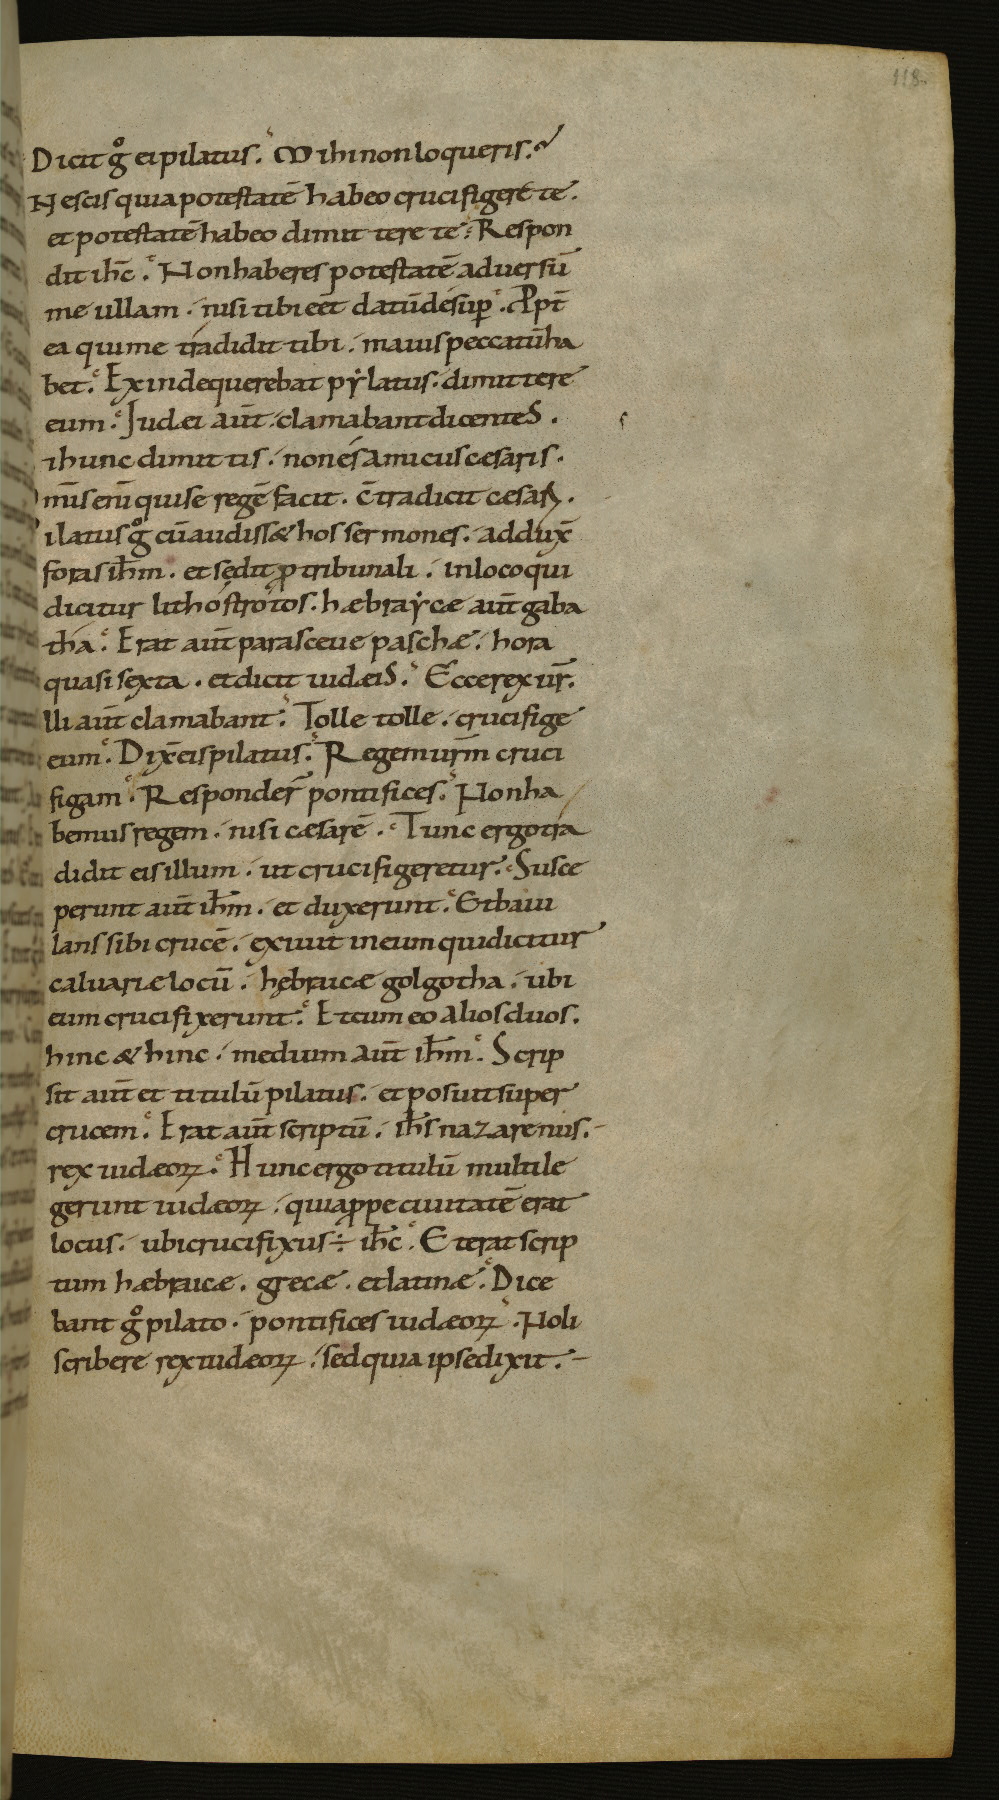 118
Dicit gͦ ei pilatus. Mihi non loqueris.
Nescis quia potestatē habeo crucifigere te.
et potestatē habeo dimittere te. Respon
dit ih̄c. Non haberes potestatē aduersū
me ullam. nisi tibi eēt datū desup̱. Ꝓpt̄
ea qui me tradidit tibi. maius peccatū ha
bet. Exinde querebat pẏlatus. dimittere
eum. Iudæi aūt clamabant dicentes.
i hunc dimittis. non és amicus cæsaris.
mīs enī qui se regē facit. c̄tradicit cæsaꝝ.
ilatus gͦ cū audiss& hos sermones. addux̄
foras ih̄m. et sędit ꝓ tribunali. in loco qui
dicitur lithóstrotos. hæbraẏcæ aūt gaba
tha. Erat aūt parasceue paschæ. hora
quasi sexta. et dicit iudæis. Ecce rex ur̄.
lli aūt clamabant. Tolle tolle. crucifige
eum. Dix̄ eis pilatus. Regem ur̄m cruci
figam. Responder̄ pontifices. Non ha
bemus regem. nisi cæsarē. Tunc ergo tra
didit eis illum. ut crucifigeretur. Susce
perunt aūt ih̄m. et duxerunt. Et baiu
lans sibi crucē. exiuit in eum qui dicitur
caluariæ locū. hębraicæ golgotha. ubi
eum crucifixerunt. Et cum eo alios duos.
hinc & hinc. medium aūt ih̄m. Scrip
sit aūt et titulū pilatus. et posuit super
crucem. Erat aūt scriptū. ih̄s nazarenus.
rex iudæoꝝ. Hunc ergo titulū multi le
gerunt iudæoꝝ. quia ꝓpe ciuitatē erat
locus. ubi crucifixus ÷ ih̄c. Et erat scrip
tum hæbraicæ. grecæ. et latinæ. Dice
bant gͦ pilato. pontifices iudæoꝝ. Noli
scribere rex iudæoꝝ. sed quia ipse dixit.